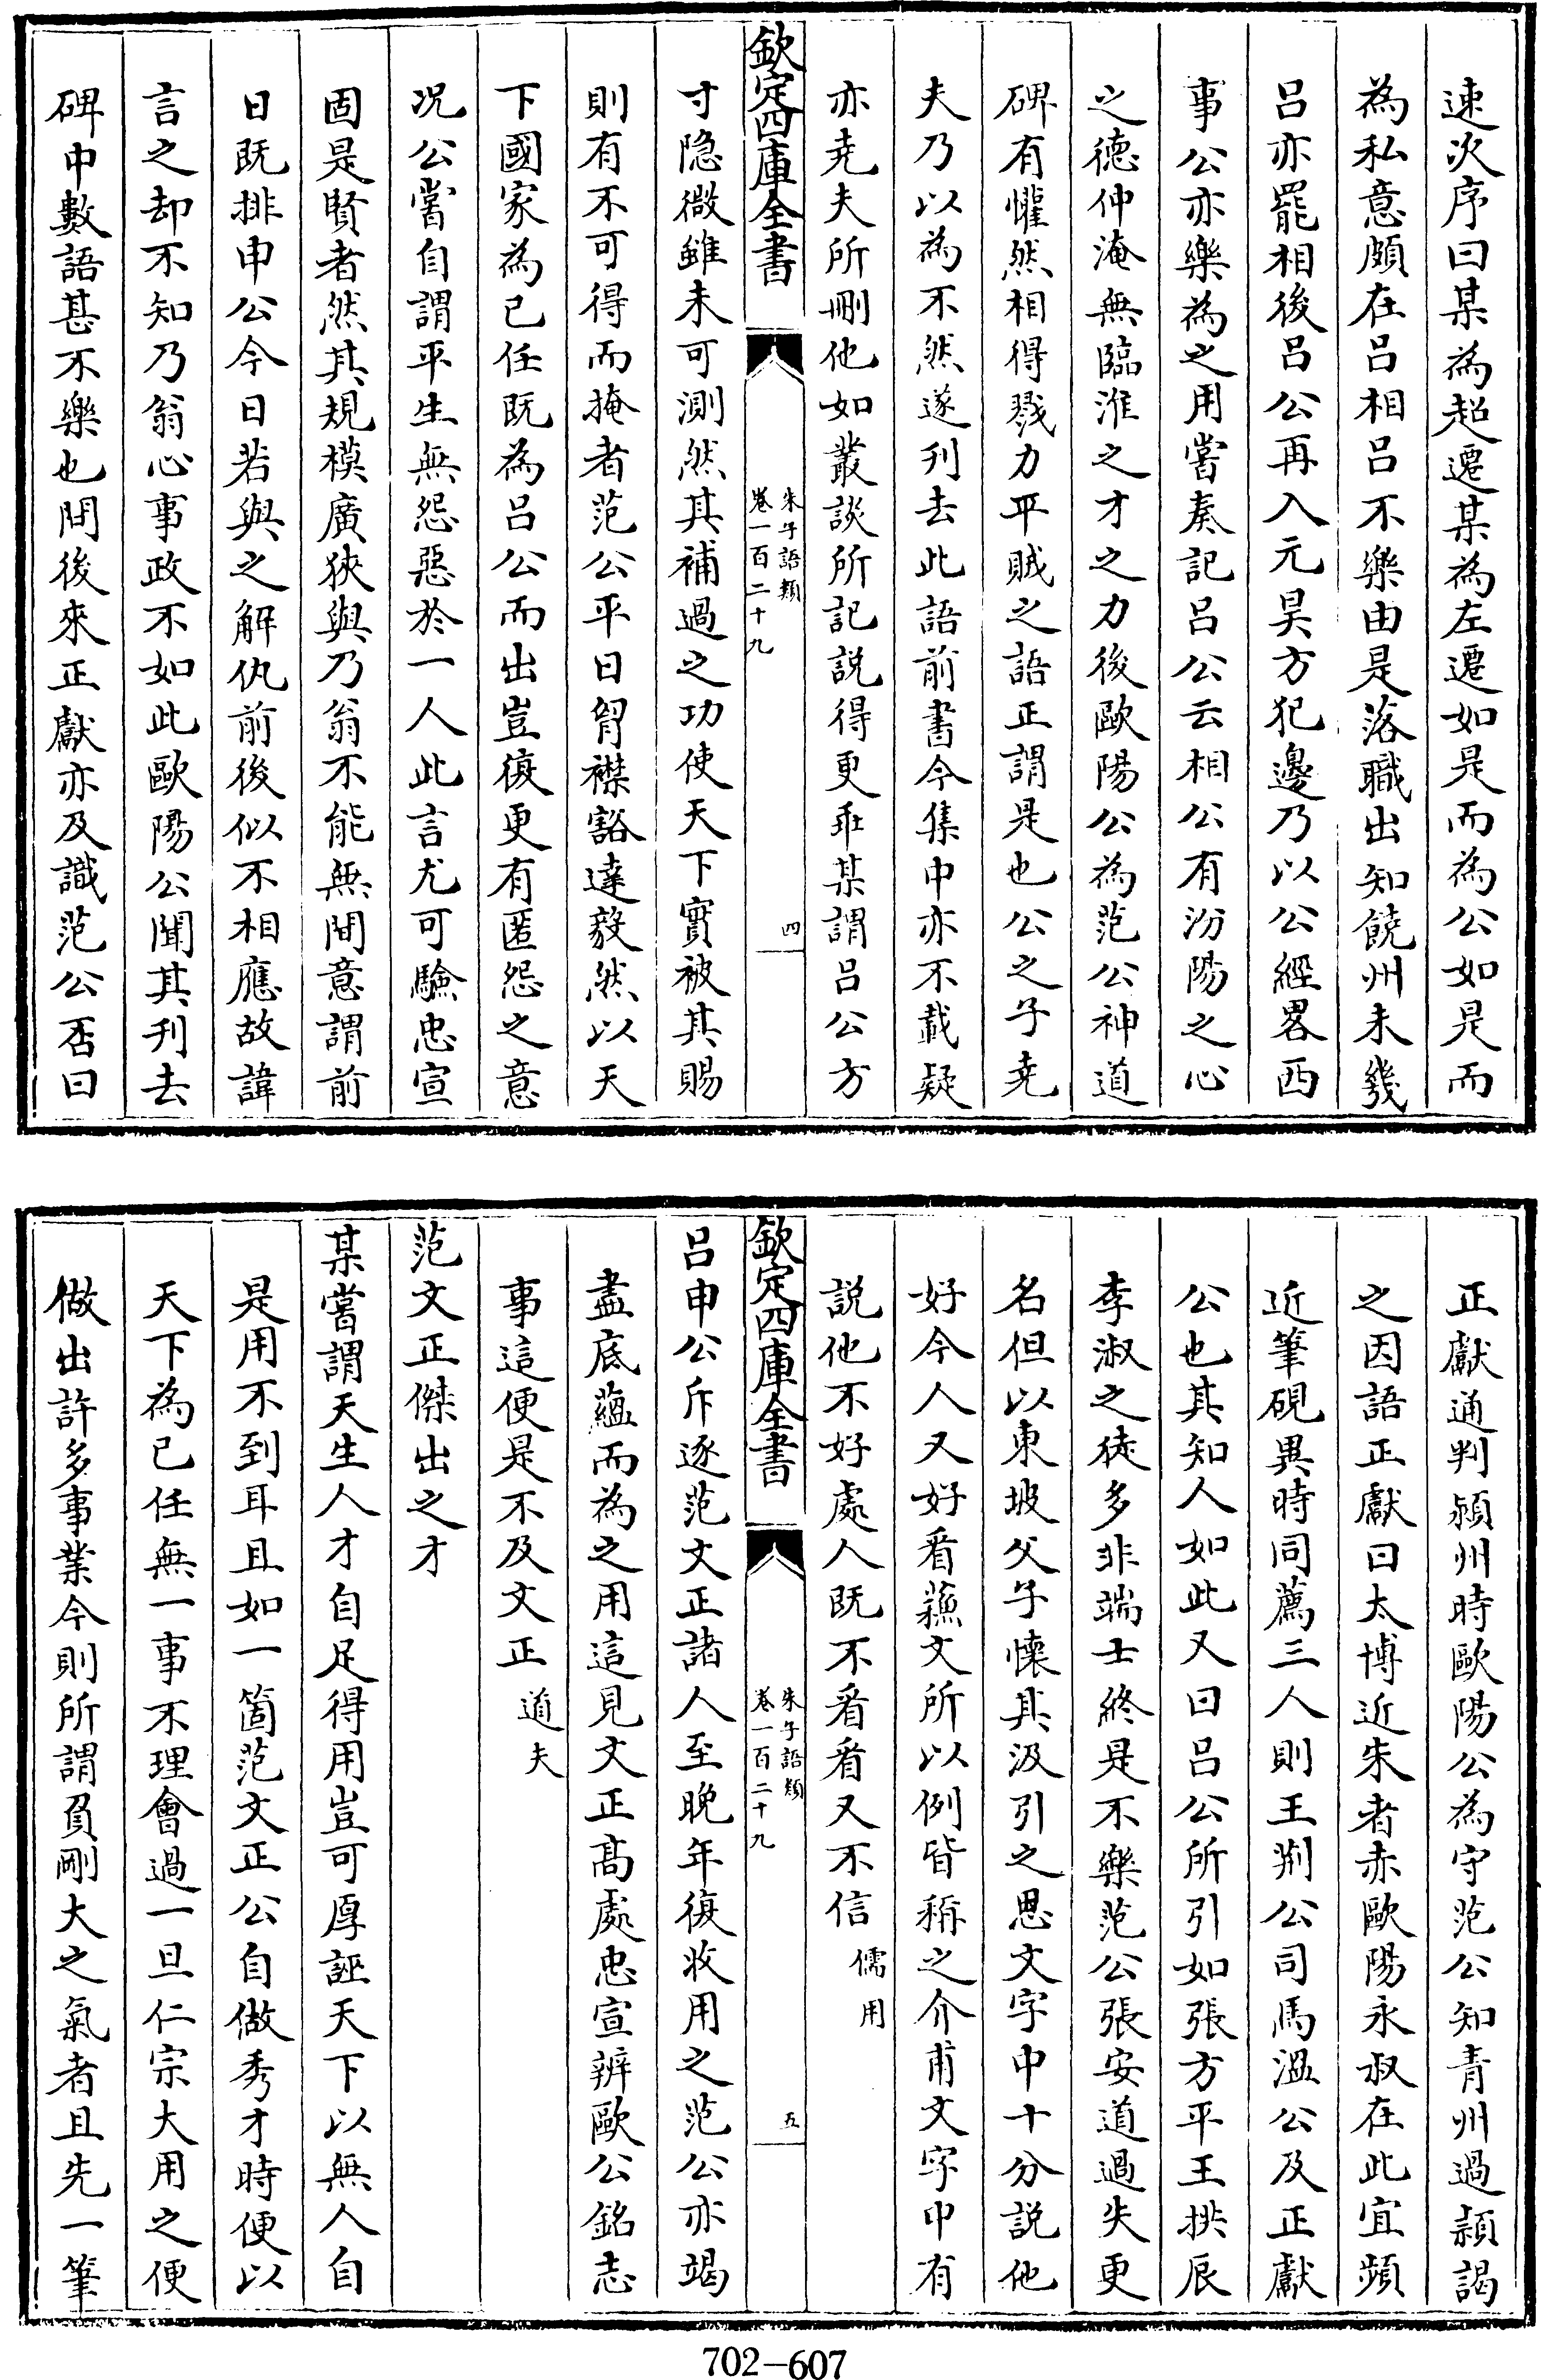 速次序曰某為超遷某為左遷如是而為公如是而
為私意頗在吕相吕不樂由是落職出知饒州未幾
吕亦罷相後吕公再入元昊方犯邊乃以公經畧西
事公亦樂為之用嘗奏記吕公云相公有汾陽之心
之德仲淹無臨淮之才之力後歐陽公為范公神道
碑有懽然相得戮力平賊之語正謂是也公之子堯
夫乃以為不然遂刋去此語前書今集中亦不載疑
亦堯夫所刪他如叢談所記説得更乖某謂吕公方
欽定四庫全書
朱子語類
卷一百二十九
四
寸隐微雖未可測然其補過之功使天下實被其賜
則有不可得而掩者范公平日胷襟豁達毅然以天
下國家為已任既為吕公而出豈復更有匿怨之意
况公嘗自謂平生無怨惡於一人此言尤可驗忠宣
固是賢者然其規模廣狹與乃翁不能無間意謂前
日既排申公今日若與之解仇前後似不相應故諱
言之却不知乃翁心事政不如此歐陽公聞其刋去
碑中數語甚不樂也問後來正獻亦及識范公否曰
正獻通判潁州時歐陽公為守范公知青州過潁謁
之因語正獻曰太博近朱者赤歐陽永叔在此宜頻
近筆硯異時同薦三人則王荆公司馬温公及正獻
公也其知人如此又曰吕公所引如張方平王拱辰
李淑之徒多非端士終是不樂范公張安道過失更
名但以東坡父子懐其汲引之恩文字中十分説他
好今人又好看蘇文所以例皆稱之介甫文字中有
説他不好處人既不看看又不信 儒用
欽定四庫全書
朱子語類
卷一百二十九
五
吕申公斥逐范文正諸人至晚年復收用之范公亦竭
盡底藴而為之用這見文正髙處忠宣辨歐公銘志
事這便是不及文正 道夫
范文正傑出之才
某嘗謂天生人才自足得用豈可厚誣天下以無人自
是用不到耳且如一箇范文正公自做秀才時便以
天下為已任無一事不理會過一旦仁宗大用之便
做出許多事業今則所謂負剛大之氣者且先一筆
702-607